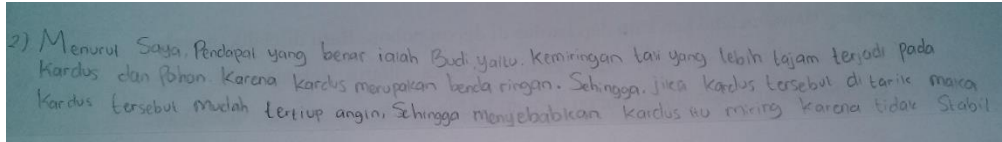 2) Menurut Saya, Pendapat yang benar ialah Budi yaitu. kemiringan tali yang lebih tajam terjadi pada
Kardus dan Pohon. Karena kardus merupakan benda ringan. Sehingga, jika kardus tersebut di tarik maka
Kardus tersebut mudah tertiup angin, Sehingga menyebabkan kardus itu miring karena tidak Stabil